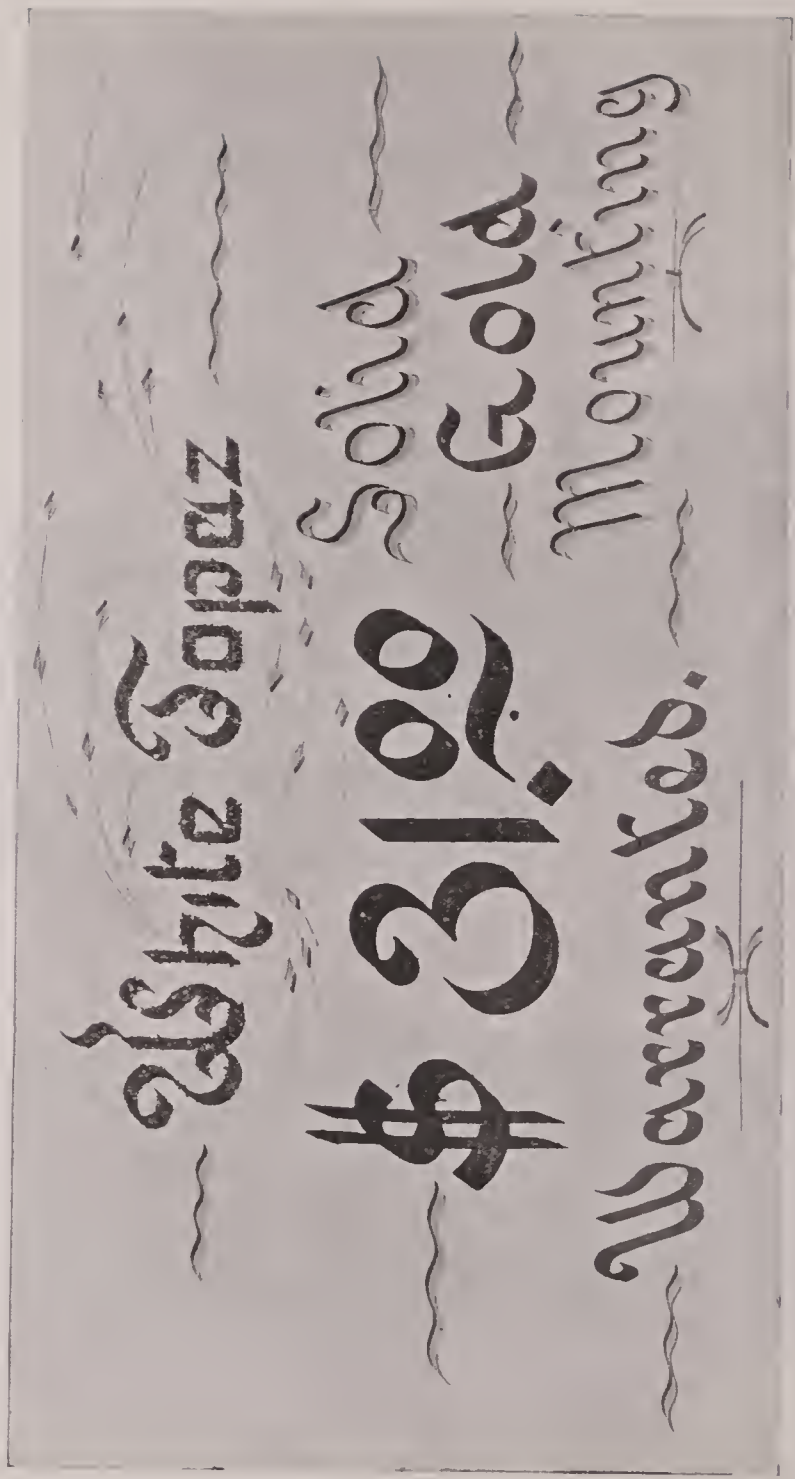 White Topaz
$31.00
Solid
Gold
Mounting
Warranted.